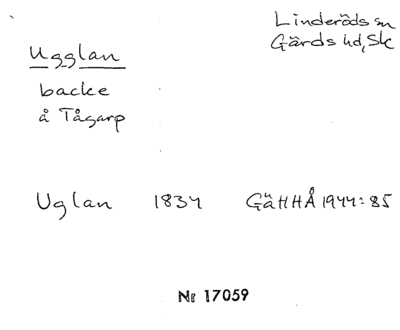 Linderöds sn
Gärds hd, Sk
Ugglan
backe
å Tågarp
Uglan 1834 GäHHÅ 1944:85
Nr 17059